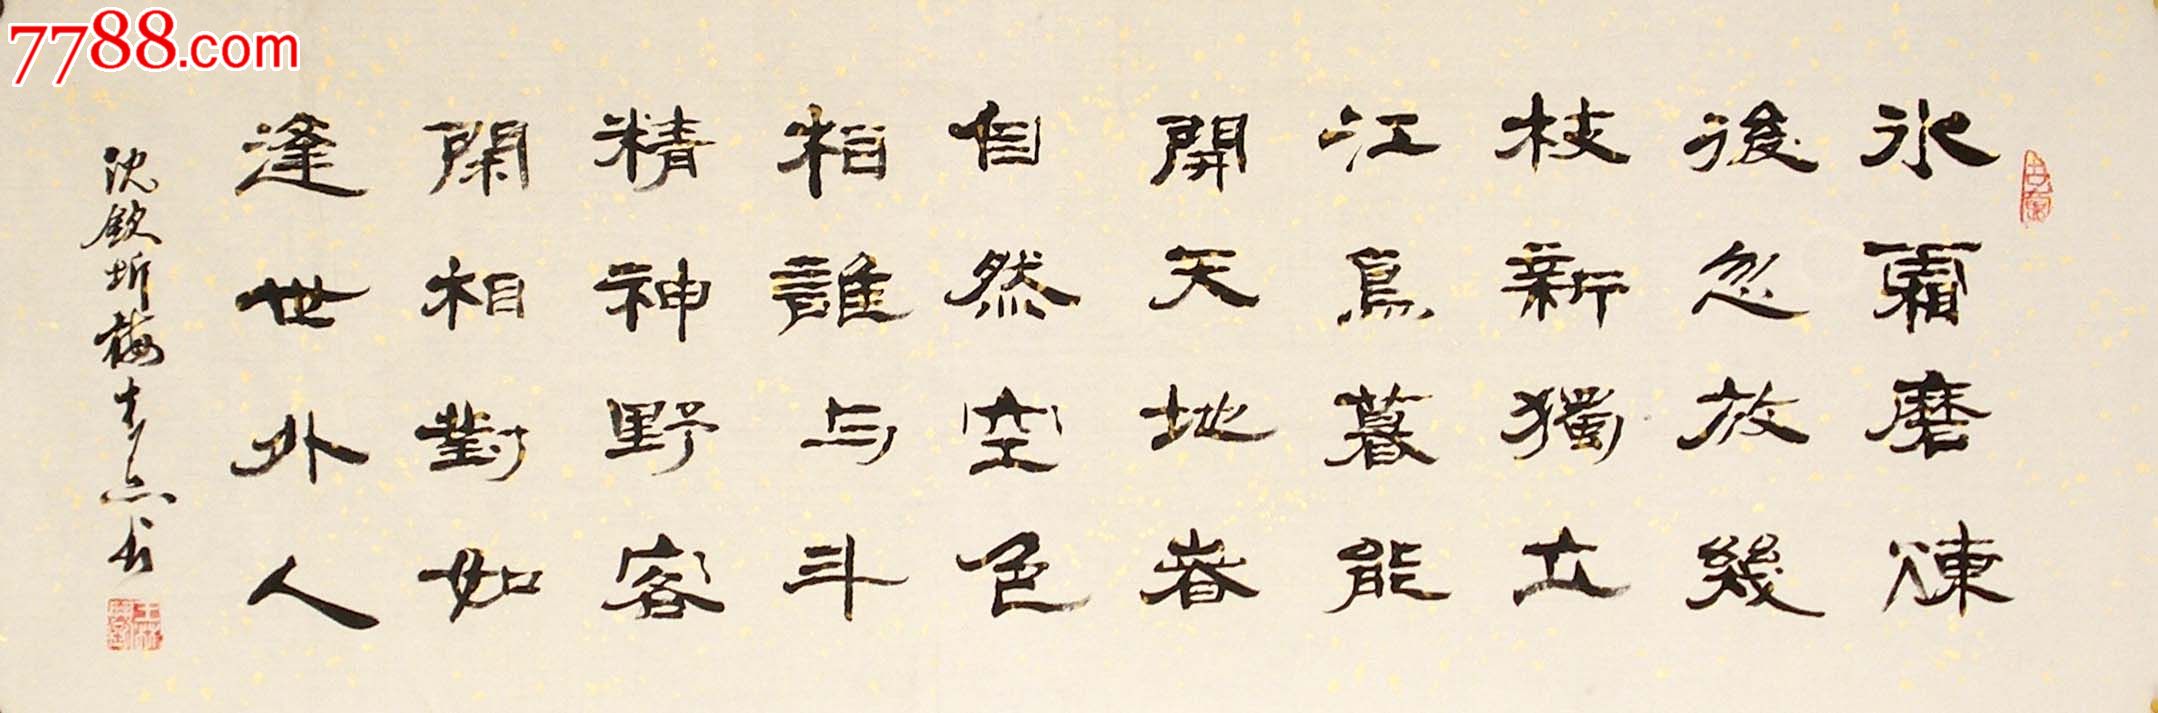 7788.com
氷霜磨煉
後忽放幾
枝新獨立
江鳥暮能
開天地春
自然空色
相誰与斗
精神野客
閑相對如
逢世外人
沈欽圻梅